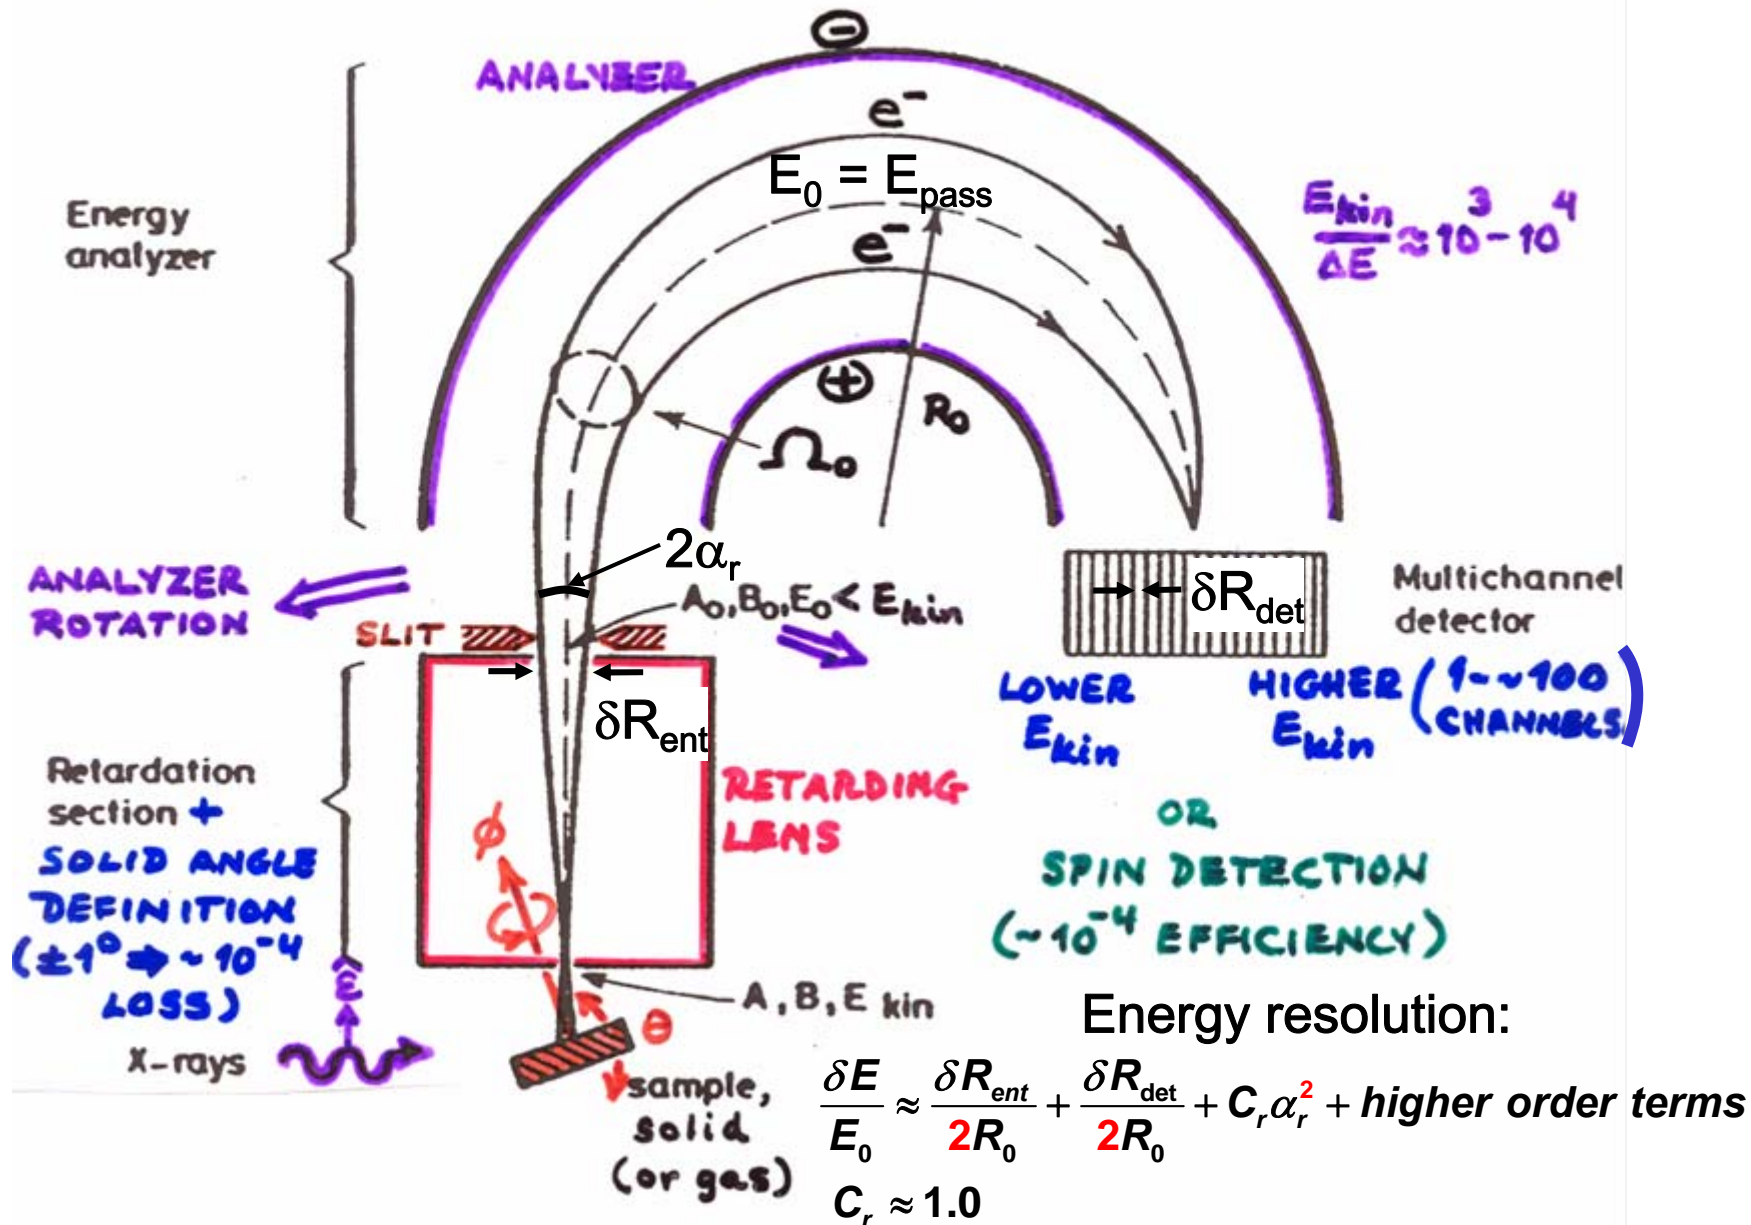 ⊖
ANALYZER
e⁻
E₀ = E_pass
e⁻
Energy
analyzer
E_kin/ΔE ≈ 10³ – 10⁴
⊕
R₀
Ω₀
2α_r
A₀, B₀, E₀ < E_kin
ANALYZER
ROTATION
SLIT
δR_ent
δR_det
Multichannel
detector
LOWER
E_kin
HIGHER
E_kin
(1-~100
CHANNELS)
Retardation
section +
SOLID ANGLE
DEFINITION
(±1⁰ ➡ ~10⁻⁴
LOSS)
RETARDING
LENS
OR
SPIN DETECTION
(~10⁻⁴ EFFICIENCY)
ϕ
θ
A, B, E kin
ε
X-rays
sample,
solid
(or gas)
Energy resolution:
δE/E₀ ≈ δR_ent/2R₀ + δR_det/2R₀ + C_rα_r² + higher order terms
C_r ≈ 1.0